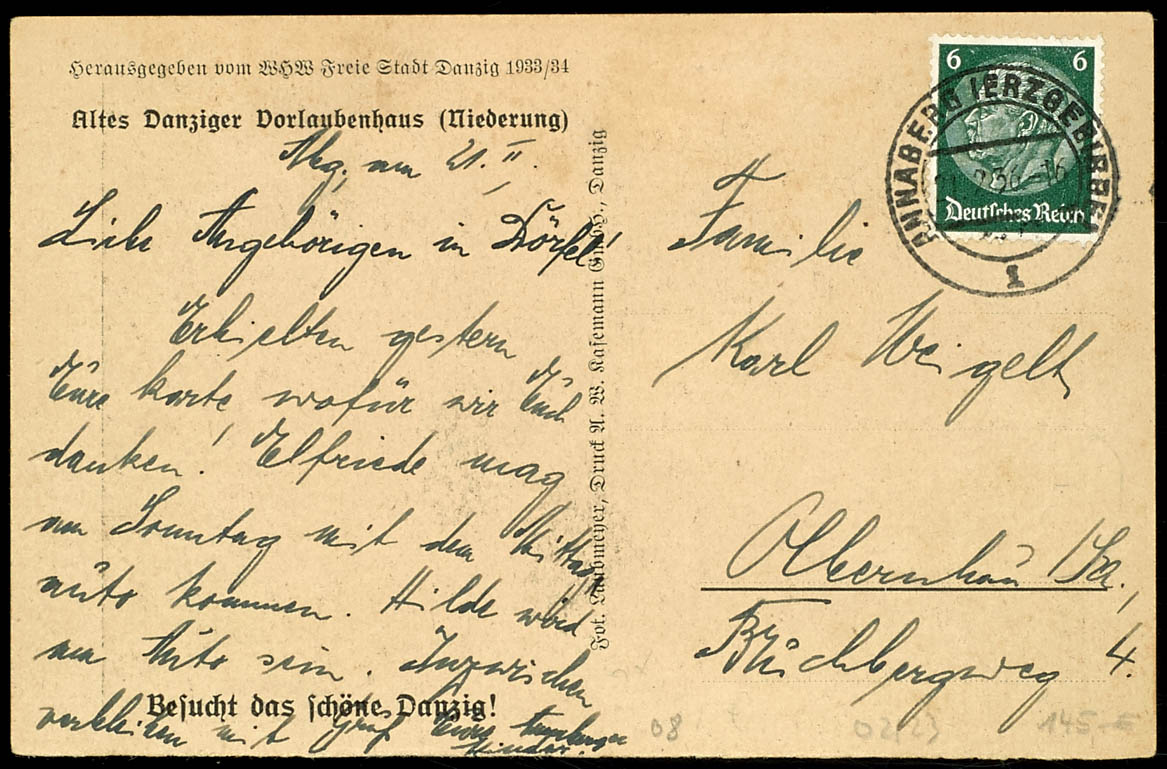 Herausgegeben vom WHW Freie Stadt Danzig 1933/34
Altes Danziger Vorlaubenhaus (Niederung)
Abg, am 21. II.
Liebe Angehörigen in Dörfel!
Erhielten gestern
Eure Karte wofür wir Euch
danken! Elfriede mag
am Sonntag mit dem Mittag
auto kommen. Hilde wird
am Auto sein. Inzwischen
verbleiben mit Gruß Eure Annaberger
Kinder.
Besucht das schöne Danzig!
Druck A. W. Kasemann G.m.b.H., Danzig
6 6
Deutsches Reich
ANNABERG (ERZGEBIRGE)
1
Familie
Karl Weigelt
Olbernhau i/Sa.,
Buchbergweg 4.
08
02/23
145,-E